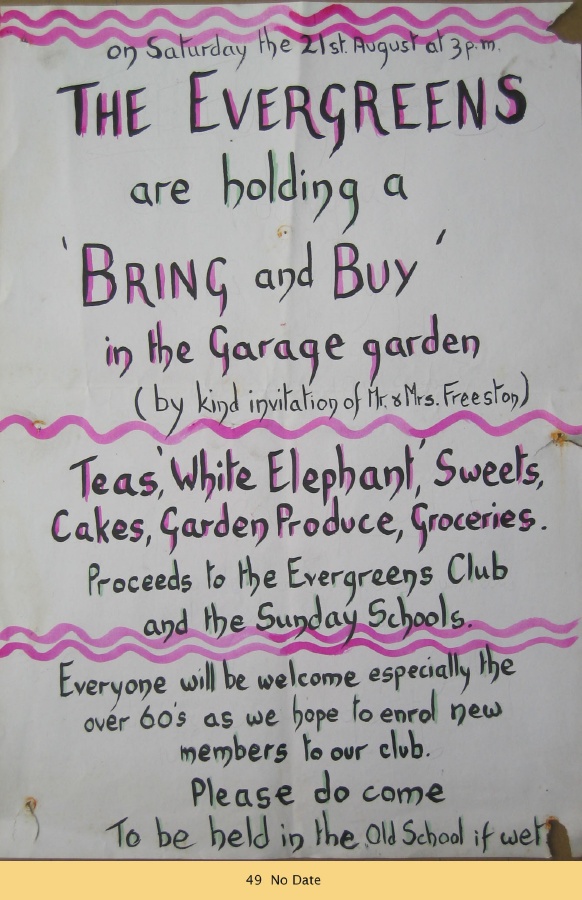 on Saturday the 21st. August at 3 p.m.
THE EVERGREENS
are holding a
'BRING and BUY'
in the Garage garden
(by kind invitation of Mr. & Mrs. Freeston)
Teas, 'White Elephant', Sweets,
Cakes, Garden Produce, Groceries.
Proceeds to the Evergreens Club
and the Sunday Schools.
Everyone will be welcome especially the
over 60's as we hope to enrol new
members to our club.
Please do come
To be held in the Old School if wet.
49 No Date